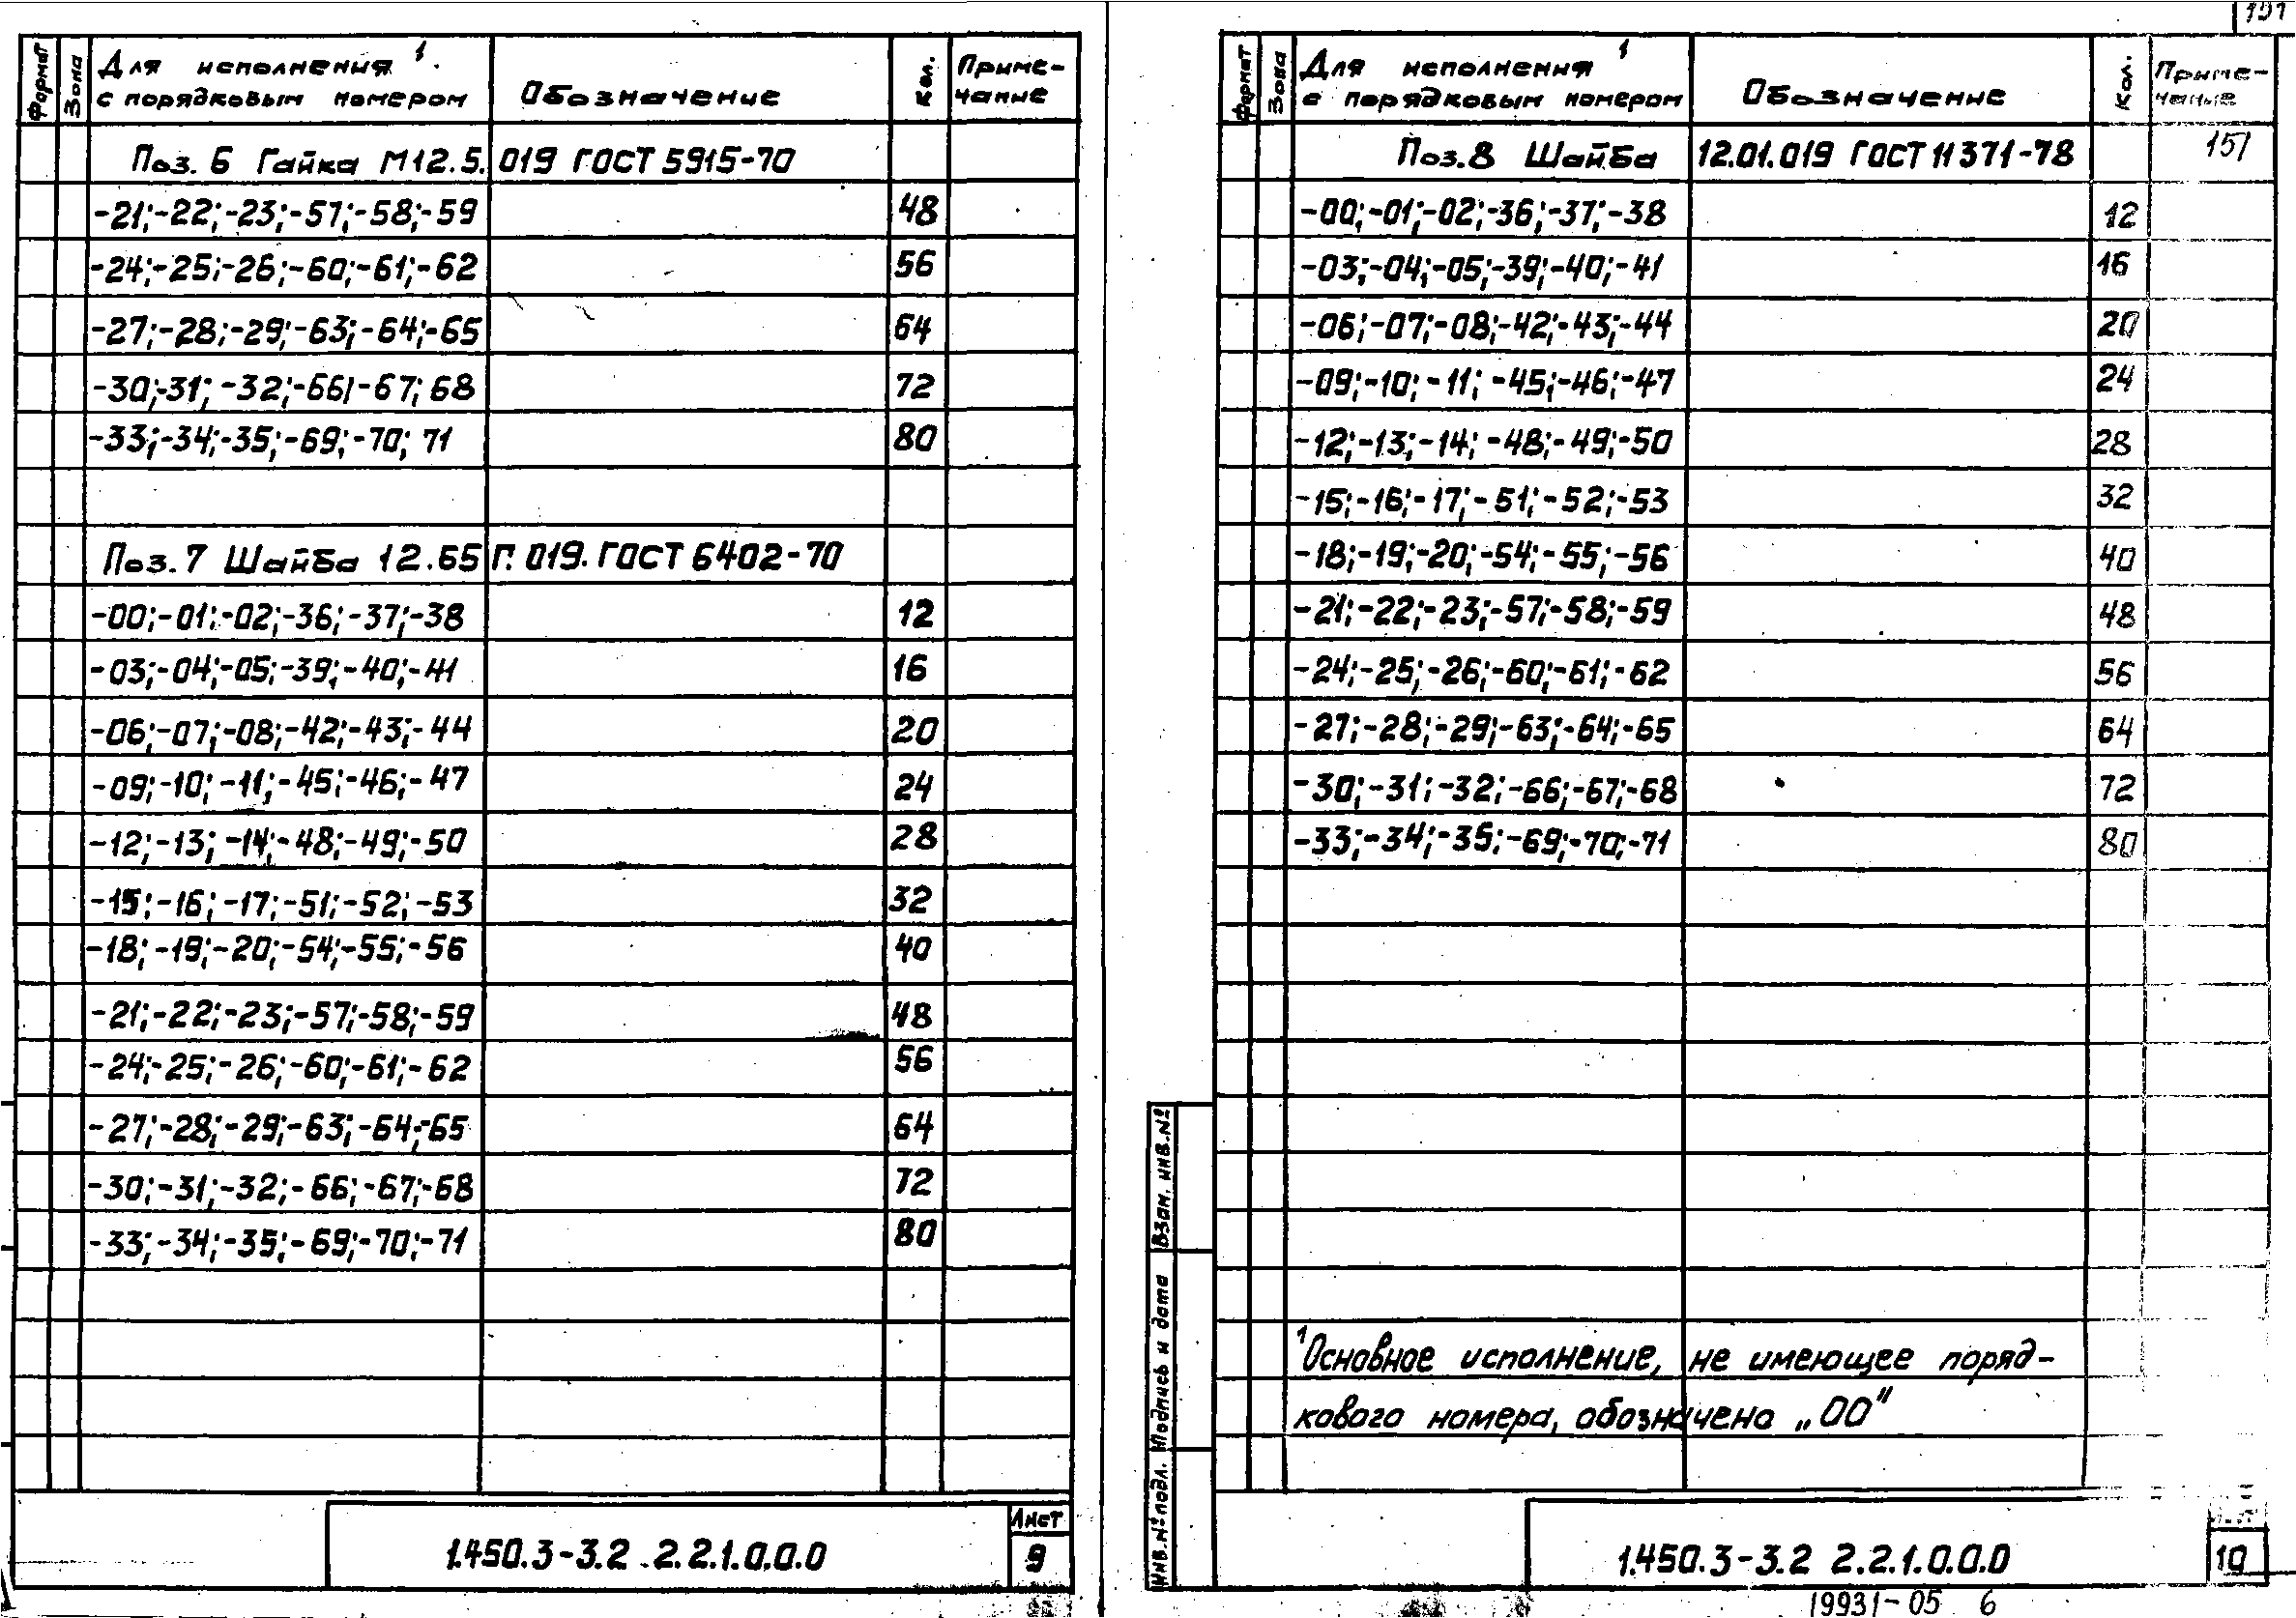 Формат Зона Для исполнения ¹ с порядковым номером Обозначение Кол. Приме-чание
Поз. 6 Гайка М12.5.019 ГОСТ 5915-70
-21;-22;-23;-57;-58;-59 48
-24;-25;-26;-60;-61;-62 56
-27;-28;-29;-63;-64;-65 64
-30;-31;-32;-66;-67;68 72
-33;-34;-35;-69;-70;71 80
Поз. 7 Шайба 12.65 Г. 019. ГОСТ 6402-70
-00;-01;-02;-36;-37;-38 12
-03;-04;-05;-39;-40;-41 16
-06;-07;-08;-42;-43;-44 20
-09;-10;-11;-45;-46;-47 24
-12;-13;-14;-48;-49;-50 28
-15;-16;-17;-51;-52;-53 32
-18;-19;-20;-54;-55;-56 40
-21;-22;-23;-57;-58;-59 48
-24;-25;-26;-60;-61;-62 56
-27;-28;-29;-63;-64;-65 64
-30;-31;-32;-66;-67;-68 72
-33;-34;-35;-69;-70;-71 80
1.450.3-3.2 2.2.1.0.0.0
Лист
9
151
Формат Зона Для исполнения ¹ с порядковым номером Обозначение Кол. Приме-чание
Поз. 8 Шайба 12.01.019 ГОСТ 11371-78 151
-00;-01;-02;-36;-37;-38 12
-03;-04;-05;-39;-40;-41 16
-06;-07;-08;-42;-43;-44 20
-09;-10;-11;-45;-46;-47 24
-12;-13;-14;-48;-49;-50 28
-15;-16;-17;-51;-52;-53 32
-18;-19;-20;-54;-55;-56 40
-21;-22;-23;-57;-58;-59 48
-24;-25;-26;-60;-61;-62 56
-27;-28;-29;-63;-64;-65 64
-30;-31;-32;-66;-67;-68 72
-33;-34;-35;-69;-70;-71 80
¹Основное исполнение, не имеющее поряд-
кового номера, обозначено „00"
Взам. инв.№
Подпись и дата
Инв.№ подл.
1.450.3-3.2 2.2.1.0.0.0
10
19931-05 6